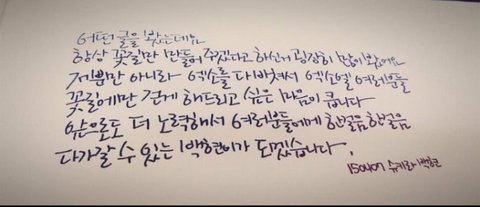 어떤 글을 봤는데요
항상 꽃길만 만들어 주겠다고 하신거 굉장히 많이 봤어요
저뿐만 아니라 엑소를 다바쳐서 엑소엘 여러분들
꽃길에만 걷게 해드리고 싶은 마음이 큽니다
앞으로도 더 노력해서 여러분들에게 한걸음 한걸음
다가갈 수 있는 백현이가 되겠습니다.
150407 슈키라 백현